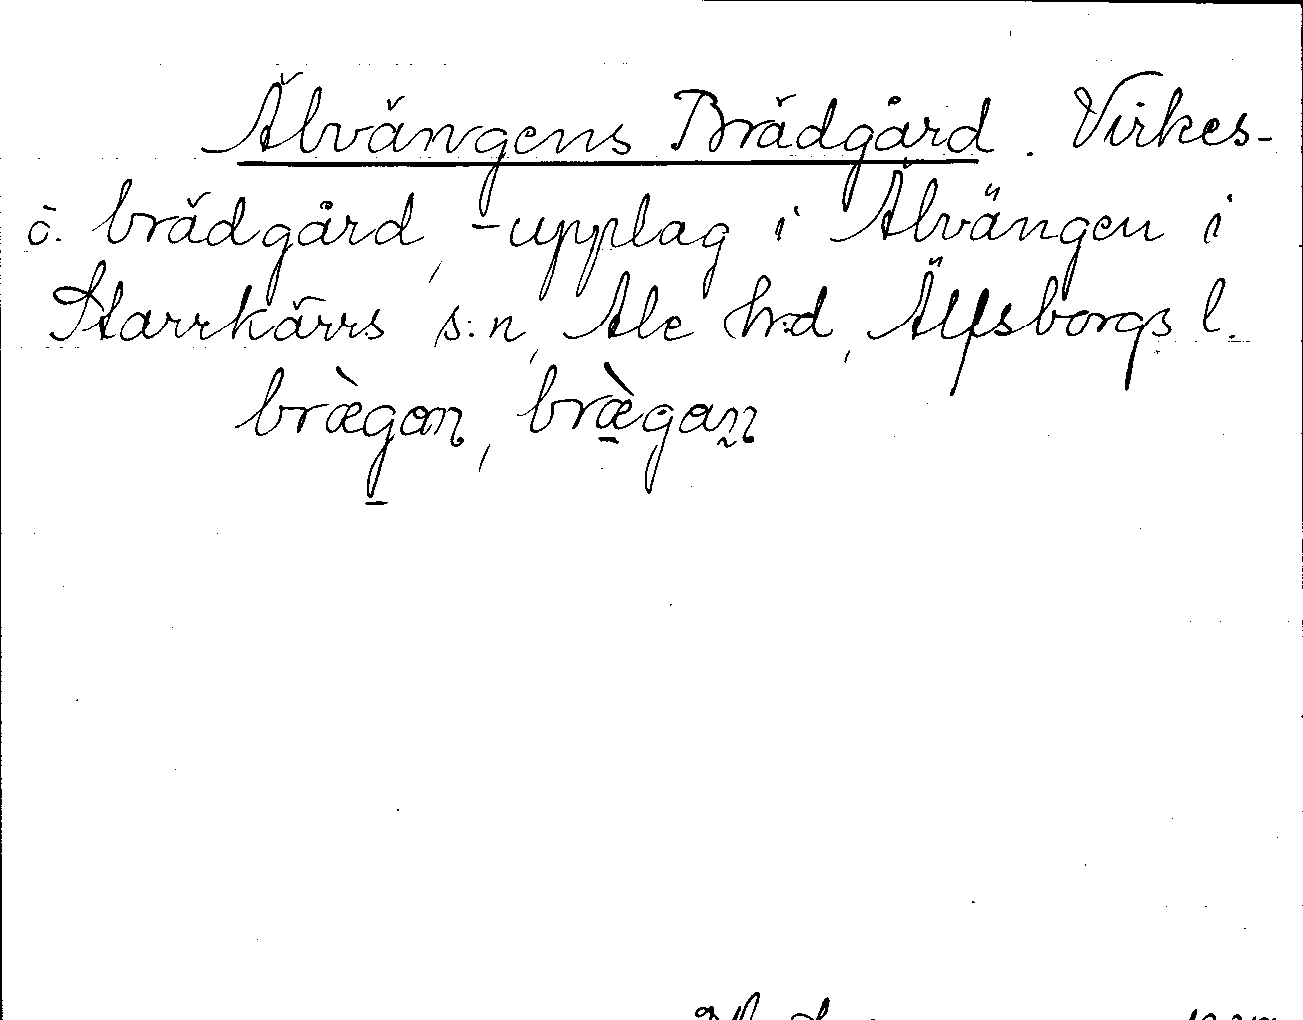 Älvängens Brädgård. Virkes-
o. brädgård, -upplag i Älvängen i
Starrkärrs s:n, Ale h:d, Älfsborgs l.
brægan, brægan